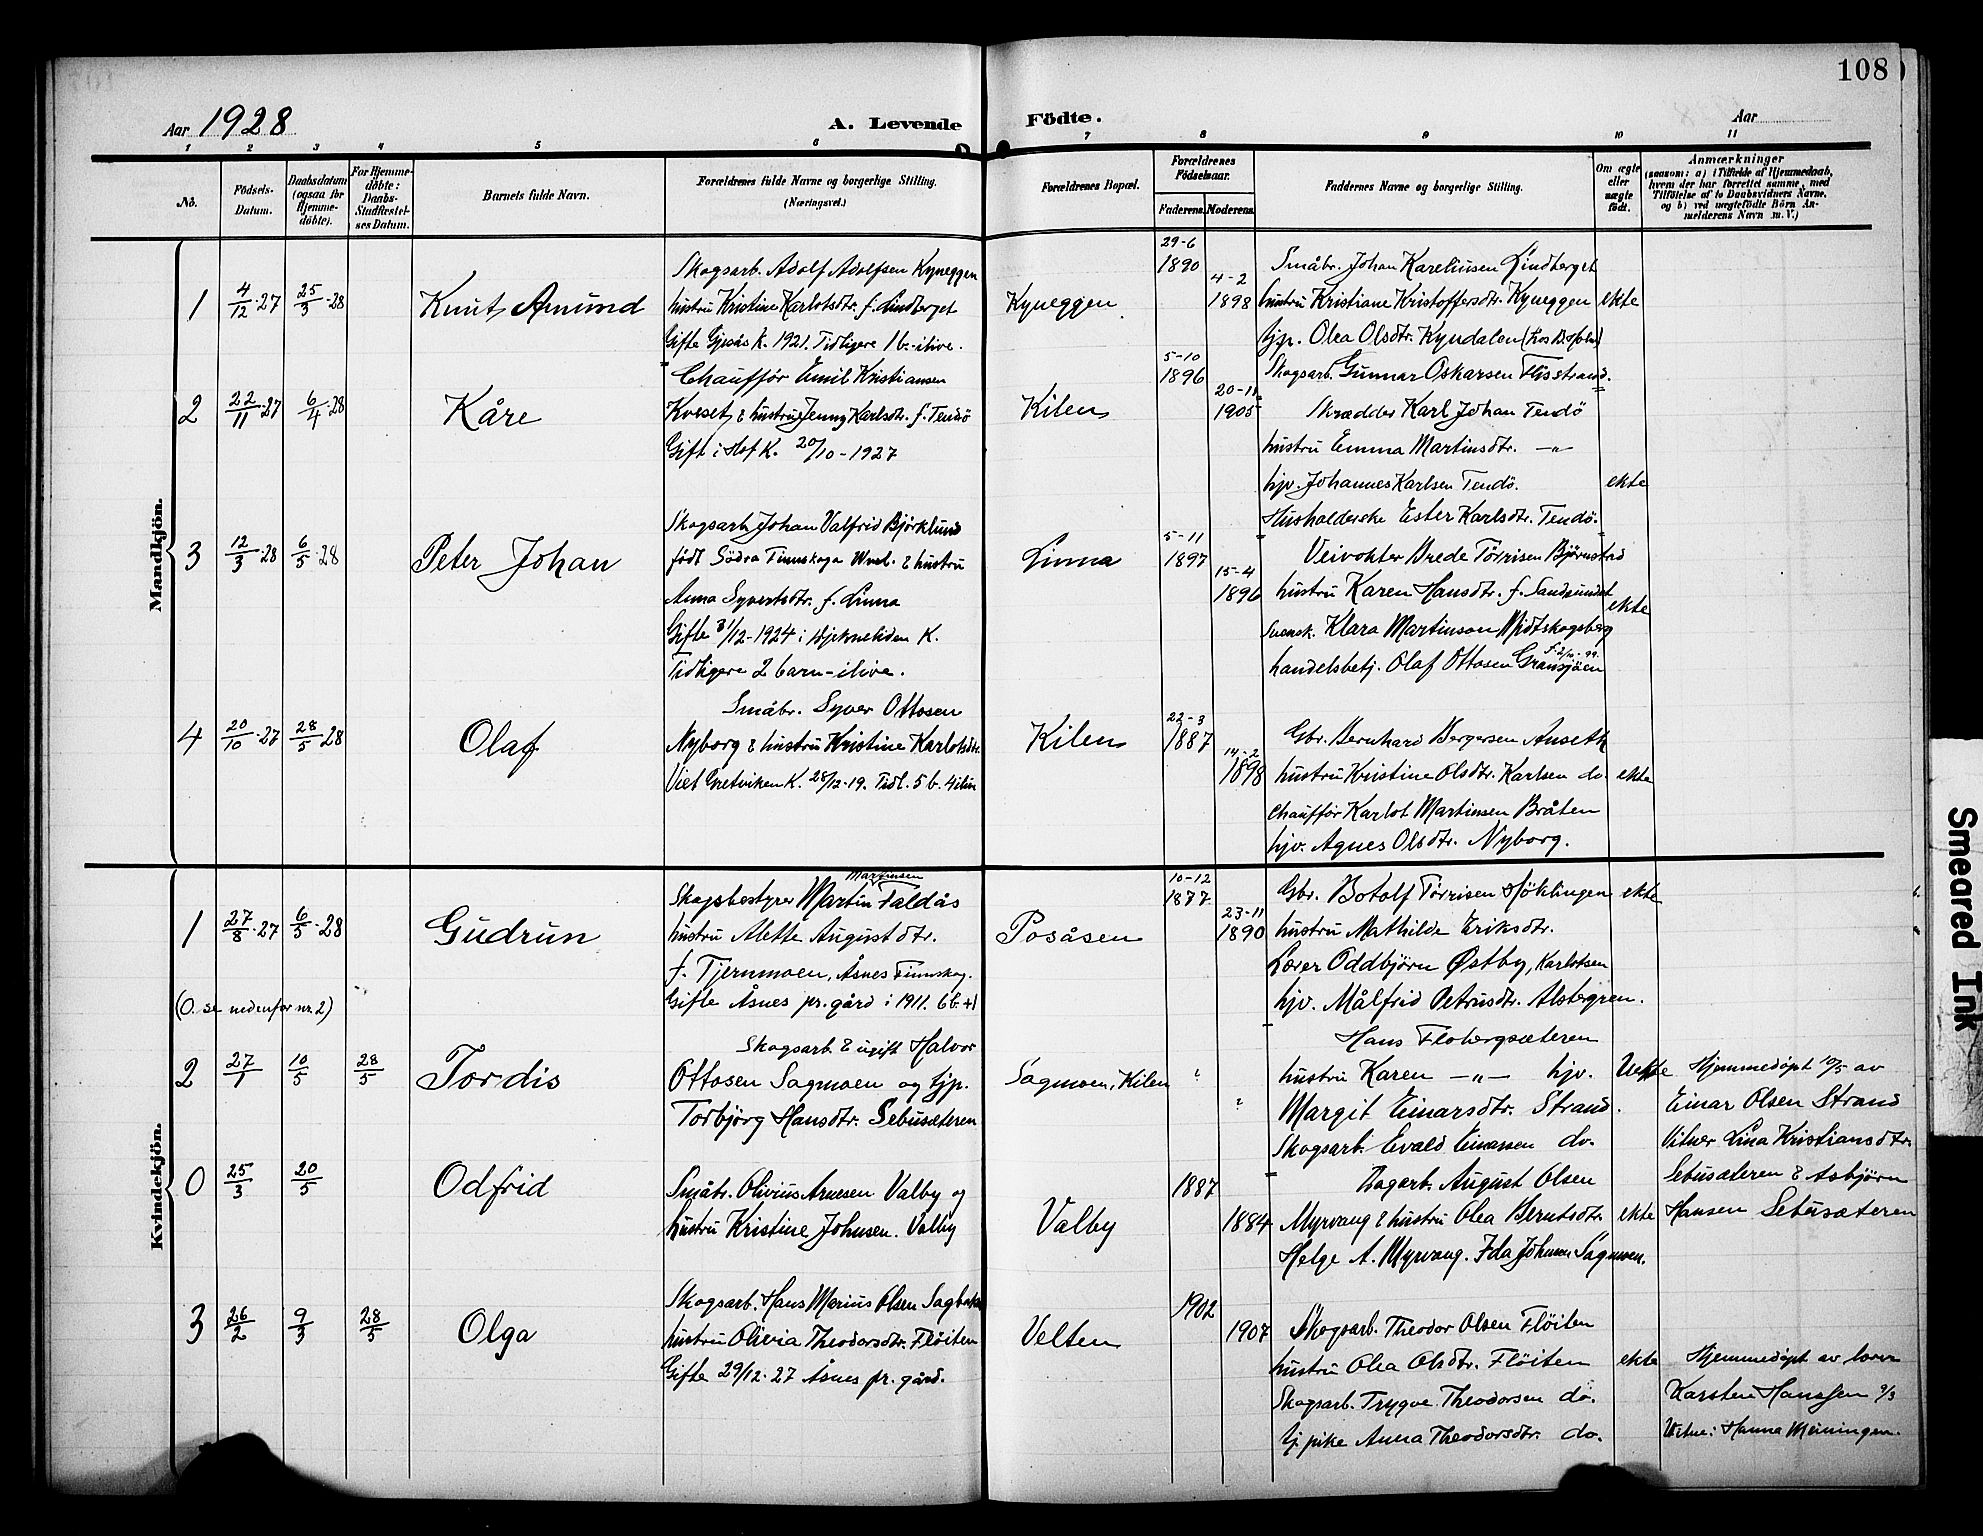 108
Aar 1928
A. Levende Födte.
Aar
1 2 3 4 5 6 7 8 9 10 11
No.
Födsels-
Datum.
Daabsdatum
(ogsaa for
Hjemme-
döbte).
For Hjemme-
döbte:
Daabs-
Stadfæstel-
ses Datum.
Barnets fulde Navn.
Forældrenes fulde Navne og borgerlige Stilling.
(Næringsvei.)
Forældrenes Bopæl.
Forældrenes
Födselsaar.
Faderens. Moderens.
Faddernes Navne og borgerlige Stilling.
Om ægte
eller
uægte
født.
Anmærkninger
(saasom: a) i Tilfælde af Hjemmedaab,
hvem der har forrettet samme, med
Tilföielse af to Daabsvidners Navne,
og b) ved uægtefödte Börn An-
melderens Navn m. V.)
Mandkjön.
1 4/12-27 25/3-28 Knut Amund
Skogsarb. Adolf Adolfsen Kyneggen
hustru Kristine Karlotsdtr. f. Lindberget
Gifte Gjesås K. 1921. Tidligere 1 b.-ilive.
Kyneggen
29-6
1890
4-2
1898
Småbr. Johan Kareliusen Lindberget
hustru Kristiane Kristoffersdtr. Kyneggen
tjp. Olea Olsdtr. Kyndalen
Skogsarb. Gunnar Oskarsen Flisstrand.
ekte
2 22/11-27 6/4-28 Kåre
Chauffør Emil Kristiansen
Kveset & hustru Jenny Karlsdtr. f. Tendö
Gift i Hof K. 20/10-1927
Kilen
5-10
1896
20-11
1905
Skrædder Karl Johan Tendö
hustru Emma Martinsdtr. -"-
hjv. Johannes Karlsen Tendö.
Husholderske Ester Karlsdtr. Tendö.
ekte
3 12/3-28 6/5-28 Peter Johan
Skogsarb. Johan Valfrid Björklund
født Södra Finnskoga & hustru
Anna Syvertsdtr. f. Linna
Gifte 31/12-1924 i K.
Tidligere 2 barn-ilive.
Linna
5-11
1897
15-4
1896
Veivokter Brede Törrisen Björnstad
hustru Karen Hansdtr. f. Sandsundet
svensk. Klara Martinson Midtskogsberg
handelsbetj. Olaf Ottosen Gransjöen
ekte
4 20/10-27 28/5-28 Olaf
Småbr. Syver Ottosen
Nyborg & hustru Kristine Karlotsdtr.
Viet Gretviken K. 28/12-19. Tidl. 5 b. 4 ilive
Kilen
22-3
1887
14-2
1898
Gbr. Bernhard Bergersen Anseth
hustru Kristine Olsdtr. Karlsen do.
chauffør Karlot Martinsen Bråten
hjv. Agnes Olsdtr. Nyborg.
ekte
Kvindekjön.
1 27/8-27 6/5-28 Gudrun
Martinsen
Skogsbestyrer Martin Faldås
hustru Alette Augustdtr.
f. Tjernmoen, Åsnes Finnskog.
Gifte Åsnes pr. gård i 1911. 6 b. +1
Posåsen
10-12
1877
23-11
1890
Gbr. Botolf Törrisen Höklingen
hustru Mathilde Eriksdtr.
Lærer Oddbjörn Østby, Karlotsen
hjv. Målfrid Petrusdtr. Alsbergren.
ekte
(O. se nedenfor nr. 2)
2 27/1 10/5 28/5 Tordis
Skogsarb. & ugift Halvor
Ottosen Sagmoen og tjp.
Torbjörg Hansdtr. Sebusæteren
Sagmoen, Kilen
?
?
Hans Flobergsæteren
hustru Karen -"- hjv.
Margit Einarsdtr. Strand.
Skogsarb. Evald Einarsen do.
Uekte
Hjemmedöpt 10/5 av
Einar Olsen Strand
Vitner Lina Kristiansdtr.
Sebusæteren & Asbjörn
Hansen Sebusæteren
0 25/3 20/5 Odfrid
Småbr. Olivius Arnesen Valby og
hustru Kristine Johnsen. Valby
Valby
1887
1884
Dagarb. August Olsen
Myrvang & hustru Olea Berntsdtr.
Helge A. Myrvang. Ida Johnsen Sagmoen.
ekte
3 26/2 9/3 28/5 Olga
Skogsarb. Hans Marius Olsen Sagbakk
hustru Olivia Theodorsdtr. Flöiten
Gifte 29/12-27 Åsnes pr. gård.
Velten
1902
1907
Skogsarb. Theodor Olsen Flöiten
hustru Olea Olsdtr. Flöiten
Skogsarb. Trygve Theodorsen do.
tj. pike Anna Theodorsdtr. do.
ekte
Hjemmedöpt av lærer
Karsten Hanssen 9/3
Vitne: Hanna Meiningen.
Smeared Ink